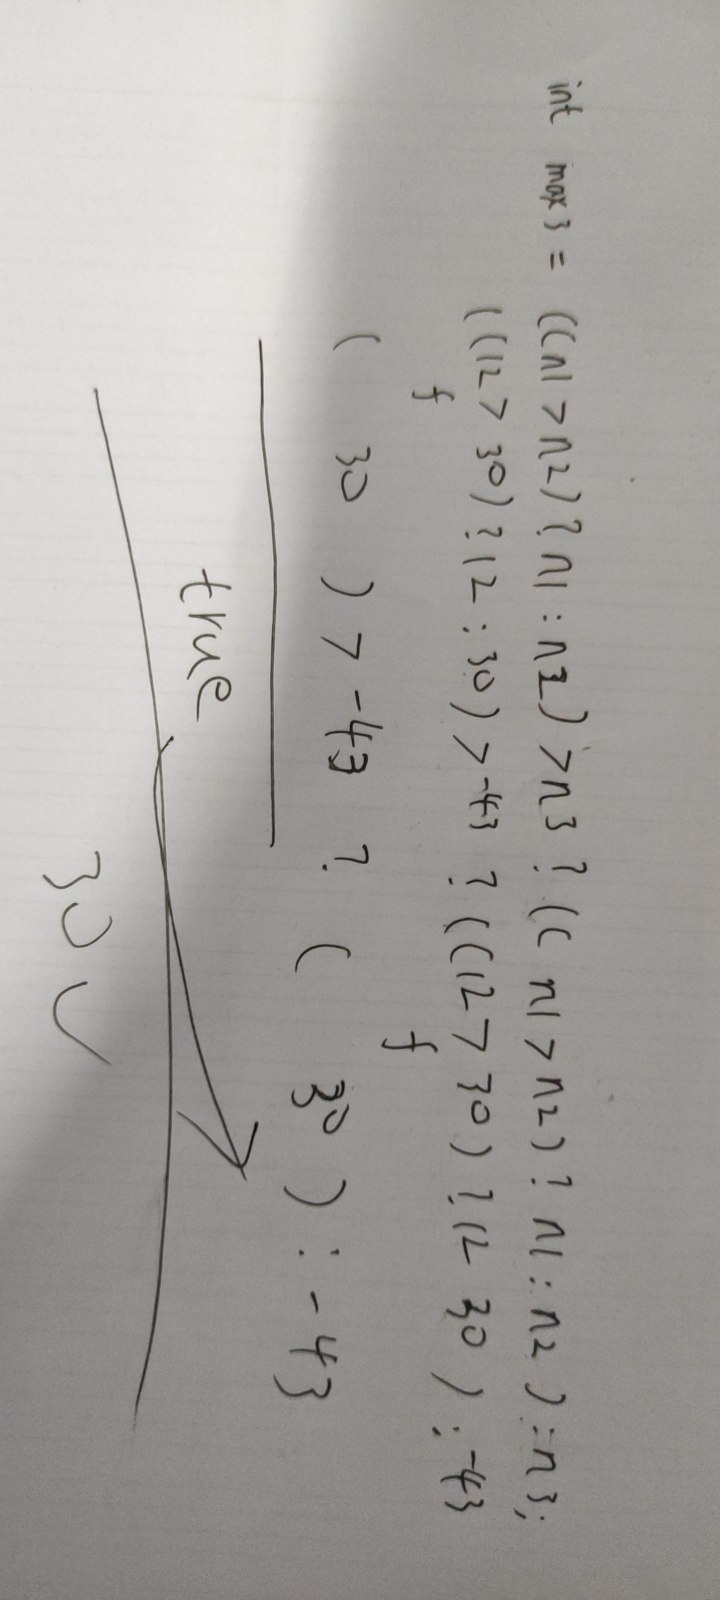 int max3 = ((n1 > n2) ? n1 : n2) > n3 ? (( n1 > n2) ? n1 : n2 ) : n3;
((12 > 30) ? 12 : 30) > -43 ? ((12 > 30) ? 12 30 ) : -43
f f
( 30 ) > -43 ? ( 30 ) : -43
true
30